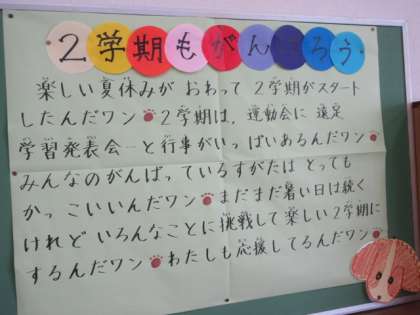 2学期もがんばろう
楽しい夏休みが おわって 2学期がスタート
したんだワン 2学期は、運動会に 遠足
学習発表会…と行事がいっぱいあるんだワン
みんなのがんばっているすがたは とっても
かっこいいんだワン まだまだ暑い日は続く
けれど いろんなことに挑戦して楽しい2学期に
するんだワン わたしも応援してるんだワン